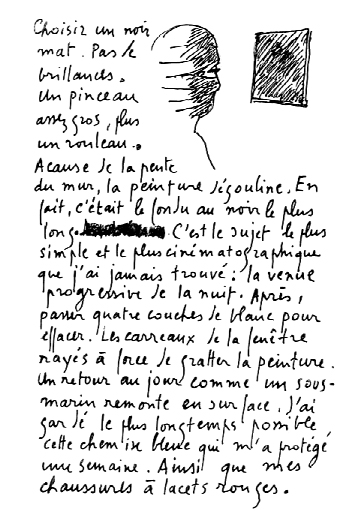 Choisir un noir
mat. Pas de
brillances.
Un pinceau
assez gros, plus
un rouleau.
A cause de la pente
du mur, la peinture dégouline. En
fait, c'était le fondu au noir le plus
long. C'est le sujet le plus
simple et le plus cinématographique
que j'ai jamais trouvé : la venue
progressive de la nuit. Après,
passer quatre couches de blanc pour
effacer. Les carreaux de la fenêtre
rayés à force de gratter la peinture.
Un retour au jour comme un sous-
marin remonte en surface. J'ai
gardé le plus longtemps possible
cette chemise bleue qui m'a protégé
une semaine. Ainsi que mes
chaussures à lacets rouges.